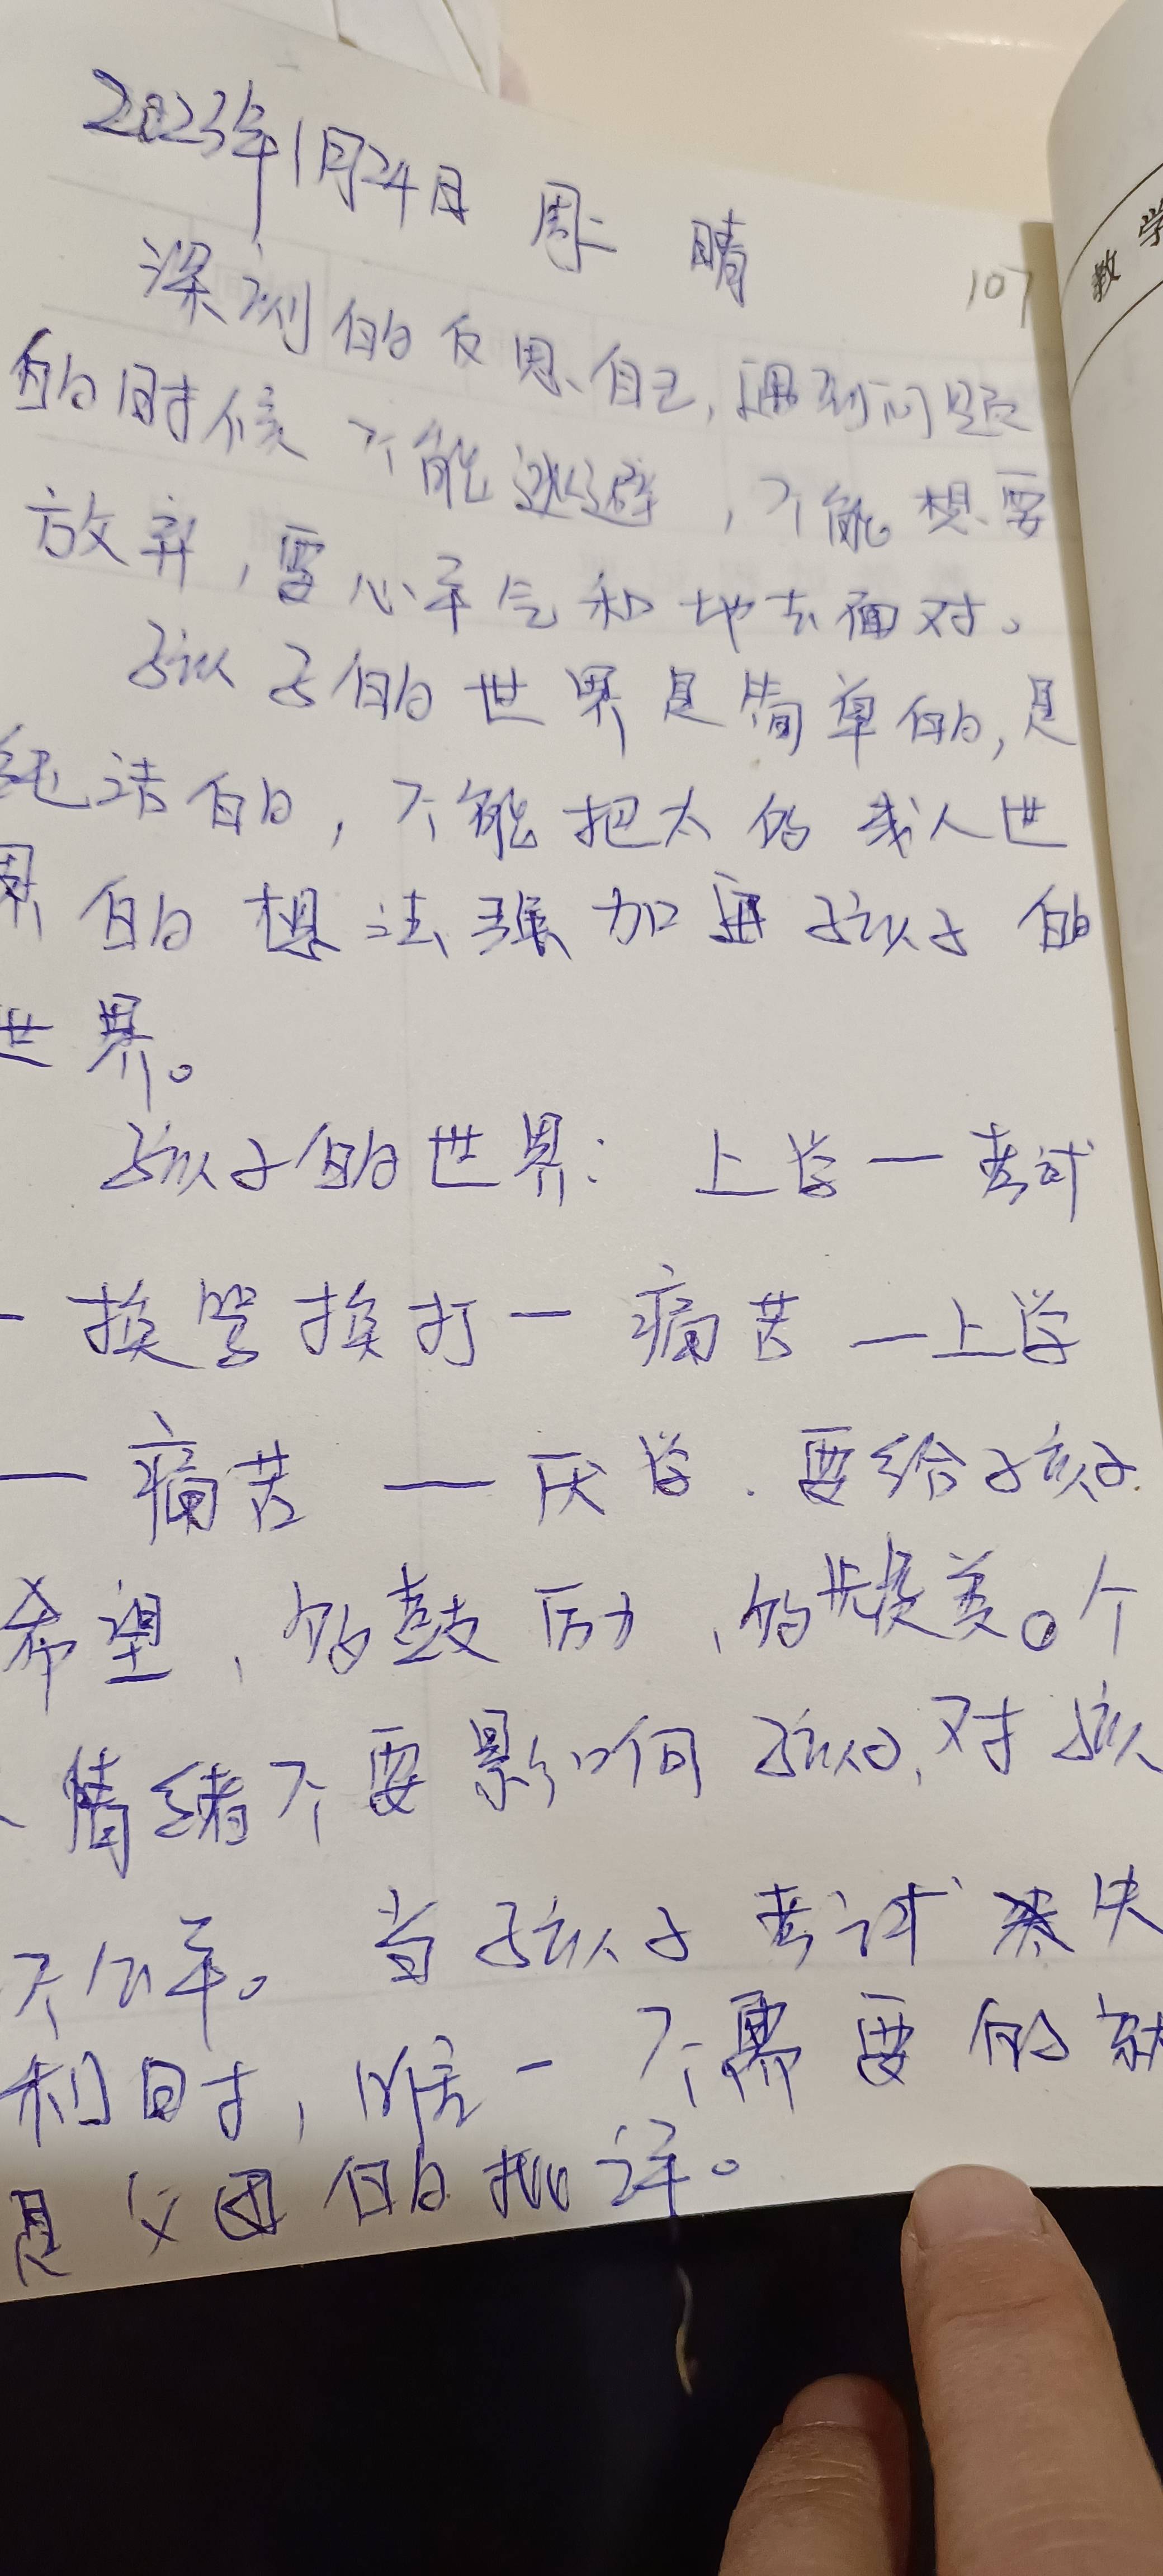 2023年1月24日 周二 晴
107
教学
深刻的反思自己,遇到问题
的时候不能逃避,不能想要
放弃,要心平气和地去面对。
孩子的世界是简单的,是
纯洁的,不能把大的成人世
界的想法强加再孩子的
世界。
孩子的世界: 上学一考试
一挨骂挨打一痛苦一上学
一痛苦一厌学.要给孩子
希望、的鼓励、的赞美。个
人情绪不要影响孩子,对孩
不公平。当孩子考试失
利时,唯一不需要的就
是父母的批评。